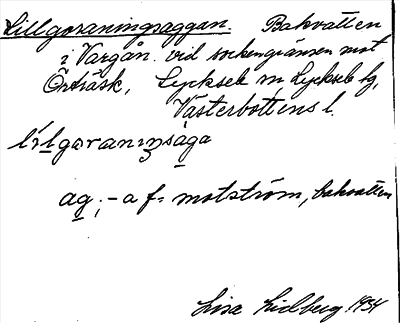 Lillgoraningsaggan. Bakvatten
i Vargån vid sockengränsen mot
Örträsk, Lycksele sn Lycksele lg,
Västerbottens l.
lílgoranıŋsàga
ag, -a f = motström, bakvatten
Lisa Lidberg 1934